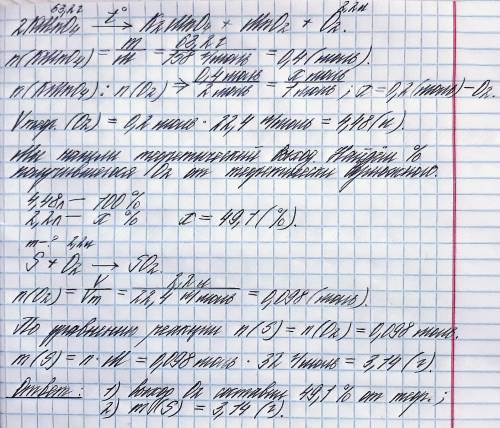 63,2г 2,2л
2KMnO₄ t° → K₂MnO₄ + MnO₂ + O₂.
n(KMnO₄) = m/M = 63,2 г/158 г/моль = 0,4 (моль).
n(KMnO₄) : n(O₂) ⇒ 0,4 моль/2 моль = x моль/1 моль ; x = 0,2 (моль) – O₂.
Vтеор. (O₂) = 0,2 моль · 22,4 л/моль = 4,48 (л).
Мы нашли теоретический выход. Найдём %
получившегося O₂ от теоретически
4,48л — 100 %
2,2л — x % x = 49,1 (%).
m - ? 2,2л
S + O₂ → SO₂
n(O₂) = V/Vm = 2,2 л/22,4 л/моль = 0,098 (моль).
По уравнению реакции n(S) = n(O₂) = 0,098 моль.
m(S) = n · M = 0,098 моль · 32 г/моль = 3,14 (г).
Ответ: 1) выход O₂ составил 49,1 % от теор.;
2) m(S) = 3,14 (г).